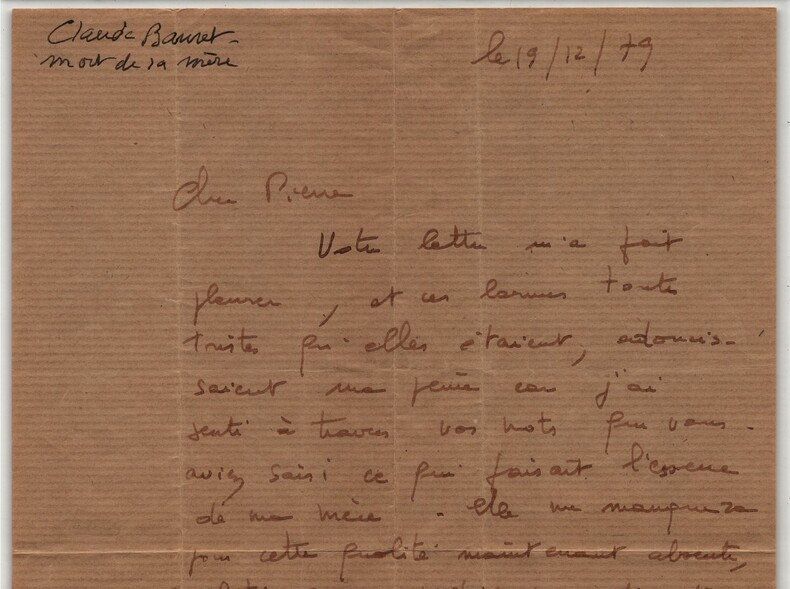 Claude Bauret -
mort de sa mère
le 19/12/79
Cher Pierre
Votre lettre m'a fait
pleurer, et ces larmes toute
tristes qu'elles étaient, adoucis-
saient ma peine car j'ai
senti à travers vos mots que vous
aviez saisi ce qui faisait l'essence
de ma mère. Elle me manquera
pour cette qualité maintenant absente,